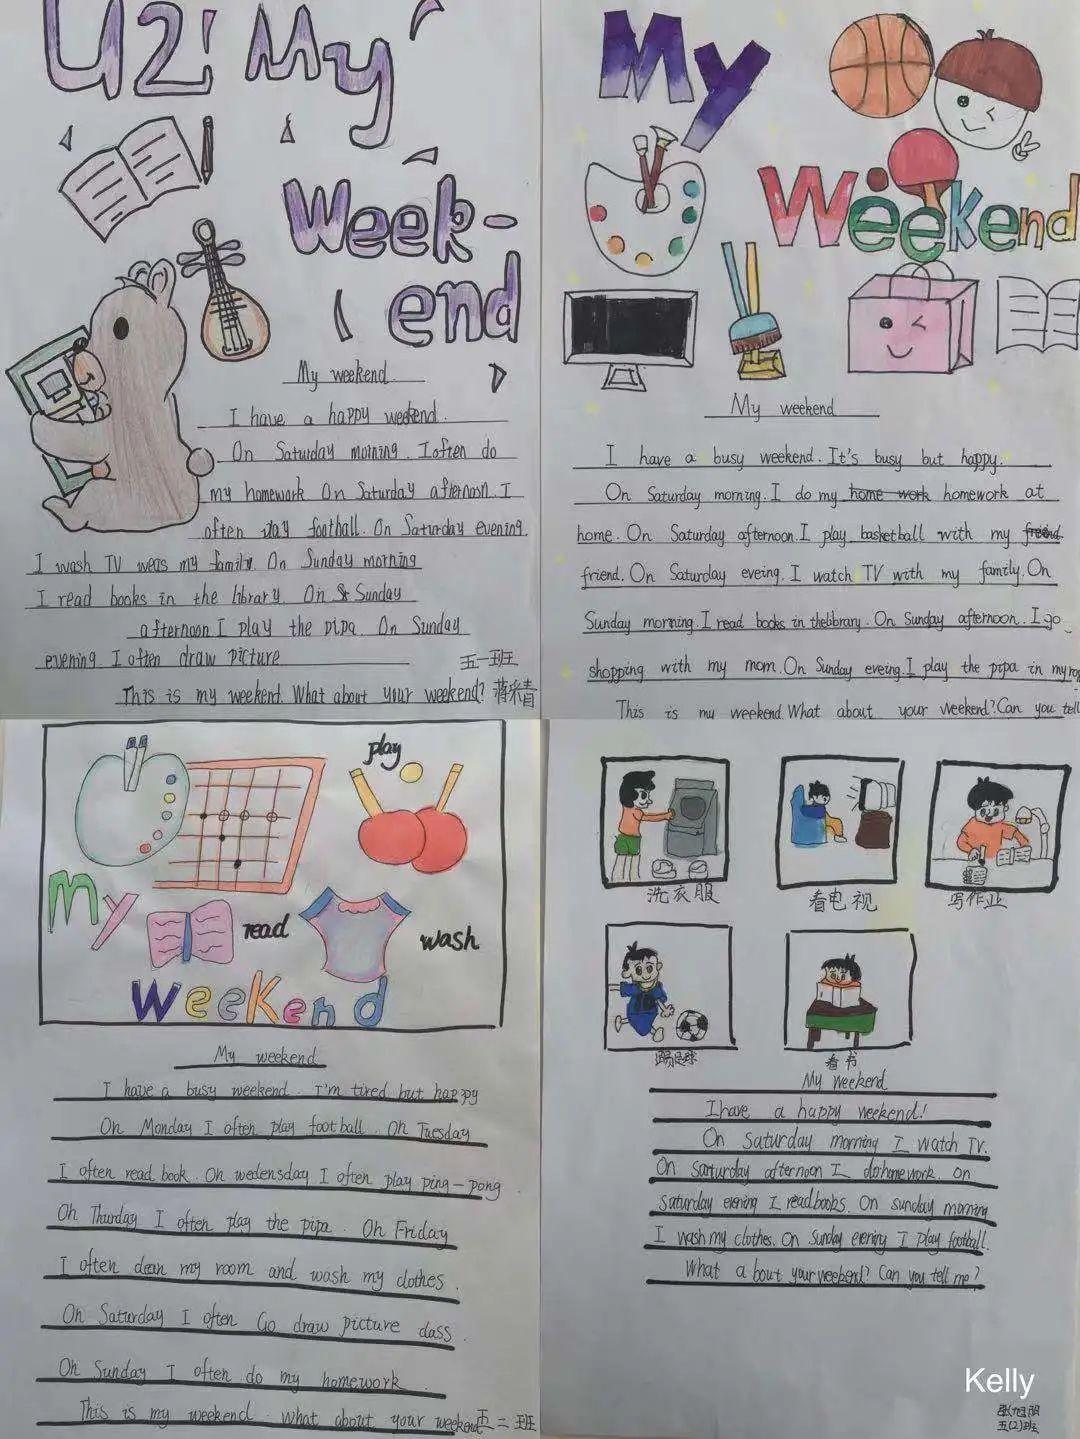 U2 My
Week-
end
My weekend
I have a happy weekend.
On Saturday morning. I often do
my homework On Saturday afternoon. I
often play football. On Saturday evening.
I wash TV my family. On Sunday morning
I read books in the library. On Sunday
afternoon I play the pipa. On Sunday
evening I often draw picture
五一班
This is my weekend. What about your weekend? 蒋采青
My
Weekend
My weekend
I have a busy weekend. It's busy but happy.
On Saturday morning. I do my home work homework at
home. On Saturday afternoon. I play basketball with my friend
friend. On Saturday eveing. I watch TV with my family. On
Sunday morning. I read books in thelibrary. On Sunday afternoon. I go
shopping with my mom. On Sunday eveing. I play the pipa in my
This is my weekend. What about your weekend? Can you tell
play
My
read
wash
Weekend
My weekend
I have a busy weekend. I'm tired but happy
On Monday I often play football. On Tuesday
I often read book. On wedensday I often play ping-pong
On Thurday I often play the pipa. On Friday
I often clean my room and wash my clothes.
On Saturday I often Go draw picture class.
On Sunday I often do my homework.
This is my weekend. what about your weekend 五二班
洗衣服
看电视
写作业
踢足球
看书
My weekend
I have a happy weekend!
On Saturday morning I watch TV.
On Sarturday afternoon I do homework. on
Saturday evening I read books. On sunday morning
I wash my clothes. On Sunday evening I play football.
What about your weekend? Can you tell me?
Kelly
五(2)班